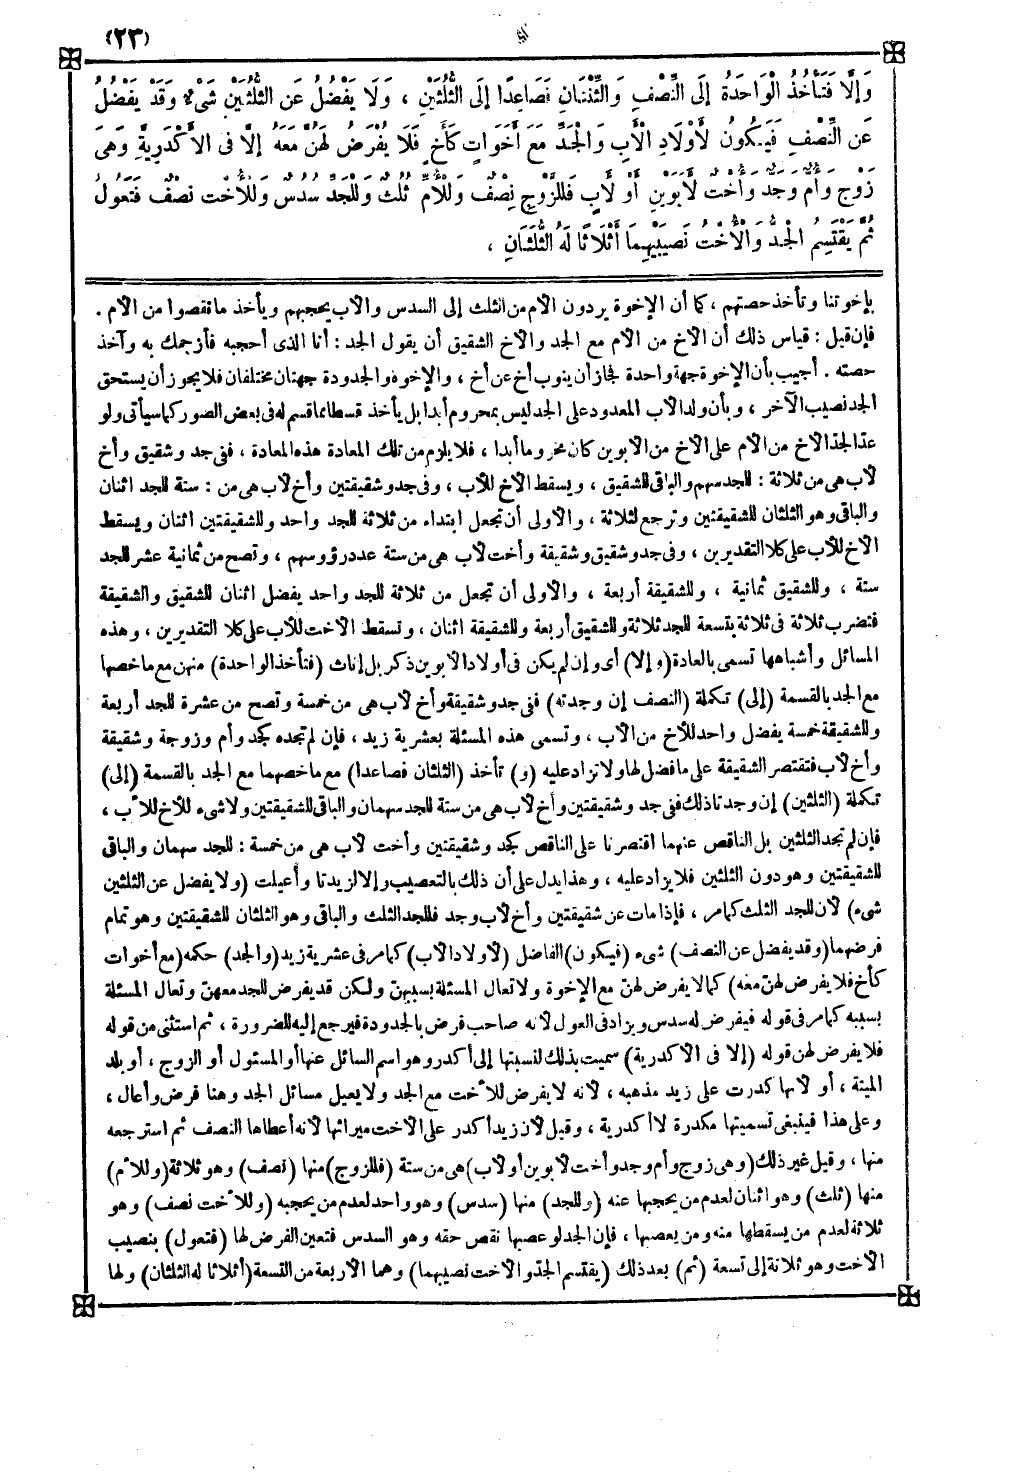 (٢٣)
وَإِلَّا فَتَأْخُذُ الْوَاحِدَةُ إِلَى النِّصْفِ وَالثِّنْتَانِ فَصَاعِدًا إِلَى الثُّلُثَيْنِ ، وَلَا يَفْضُلُ عَنِ الثُّلُثَيْنِ شَيْءٌ وَقَدْ يَفْضُلُ
عَنِ النِّصْفِ فَيَكُونُ لِأَوْلَادِ الْأَبِ وَالْجَدِّ مَعَ أَخَوَاتٍ كَأَخٍ فَلَا يُفْرَضُ لَهُنَّ مَعَهُ إِلَّا فِى الْأَكْدَرِيَّةِ وَهِىَ
زَوْجٌ وَأُمٌّ وَجَدٌّ وَأُخْتٌ لِأَبَوَيْنِ أَوْ لِأَبٍ فَلِلزَّوْجِ نِصْفٌ وَلِلْأُمِّ ثُلُثٌ وَلِلْجَدِّ سُدُسٌ وَلِلْأُخْتِ نِصْفٌ فَتَعُولُ
ثُمَّ يَقْتَسِمُ الْجَدُّ وَالْأُخْتُ نَصِيبَيْهِمَا أَثْلَاثًا لَهُ الثُّلُثَانِ ،
بإخوتنا وتأخذ حصتهم ، كما أن الإخوة يردون الأم من الثلث إلى السدس والأب يحجبهم ويأخذ ما نقصوا من الأم .
فإن قيل : قياس ذلك أن الأخ من الأم مع الجد والأخ الشقيق أن يقول الجد : أنا الذى أحجبه فأزحمك به وآخذ
حصته . أجيب بأن الإخوة جهة واحدة فجاز أن ينوب أخ عن أخ ، والإخوة والجدودة جهتان مختلفتان فلا يجوز أن يستحق
الجد نصيب الآخر ، وبأن ولد الأب المعدود على الجد ليس بمحروم أبدا بل يأخذ قسطا مما قسم له فى بعض الصور كما سيأتى ولو
عد الجد الأخ من الأم على الأخ من الأبوين كان محروما أبدا ، فلا يلزم من تلك المعادة هذه المعادة ، ففى جد وشقيق وأخ
لأب هى من ثلاثة : للجد سهم والباقى للشقيق ، ويسقط الأخ للأب ، وفى جد وشقيقتين وأخ لأب هى من : ستة للجد اثنان
والباقى وهو الثلثان للشقيقتين وترجع لثلاثة ، والأولى أن تجعل ابتداء من ثلاثة للجد واحد وللشقيقتين اثنان ويسقط
الأخ للأب على كلا التقديرين ، وفى جد وشقيق وشقيقة وأخت لأب هى من ستة عدد رؤوسهم ، وتصح من ثمانية عشر للجد
ستة ، وللشقيق ثمانية ، وللشقيقة أربعة ، والأولى أن تجعل من ثلاثة للجد واحد يفضل اثنان للشقيق والشقيقة
فتضرب ثلاثة فى ثلاثة بتسعة للجد ثلاثة وللشقيق أربعة وللشقيقة اثنان ، وتسقط الأخت للأب على كلا التقديرين ، وهذه
المسائل وأشباهها تسمى بالعادة (وإلا) أى وإن لم يكن فى أولاد الأبوين ذكر بل إناث (فتأخذ الواحدة) منهن مع ما خصها
مع الجد بالقسمة (إلى) تكملة (النصف إن وجدته) ففى جد وشقيقة وأخ لأب هى من خمسة وتصح من عشرة للجد أربعة
وللشقيقة خمسة يفضل واحد للأخ من الأب ، وتسمى هذه المسئلة بعشرية زيد ، فإن لم تجده كجد وأم وزوجة وشقيقة
وأخ لأب فتقتصر الشقيقة على ما فضل لها ولا تزاد عليه (و) تأخذ (الثلثان فصاعدا) مع ما خصهما مع الجد بالقسمة (إلى)
تكملة (الثلثين) إن وجدتا ذلك ففى جد وشقيقتين وأخ لأب هى من ستة للجد سهمان والباقى للشقيقتين ولا شىء للأخ للأب ،
فإن لم تجد الثلثين بل الناقص عنهما اقتصرنا على الناقص كجد وشقيقتين وأخت لأب هى من خمسة : للجد سهمان والباقى
للشقيقتين وهو دون الثلثين فلا يزاد عليه ، وهذا يدل على أن ذلك بالتعصيب وإلا لزيدتا وأعيلت (ولا يفضل عن الثلثين
شىء) لأن للجد الثلث كما مر ، فإذا مات عن شقيقتين وأخ لأب وجد فللجد الثلث والباقى وهو الثلثان للشقيقتين وهو تمام
فرضهما (وقد يفضل عن النصف) شىء (فيكون) الفاضل (لأولاد الأب) كما مر فى عشرية زيد (والجد) حكمه (مع أخوات
كأخ فلا يفرض لهن معه) كما لا يفرض لهن مع الإخوة ولا تعال المسئلة بسببهن ولكن قد يفرض للجد معهن وتعال المسئلة
بسببه كما مر فى قوله فيفرض له سدس ويزاد فى العول لأنه صاحب فرض بالجدودة فيرجع إليه للضرورة ، ثم استثنى من قوله
فلا يفرض لهن قوله (إلا فى الأكدرية) سميت بذلك لنسبتها إلى أكدر وهو اسم السائل عنها أو المسئول أو الزوج ، أو بلد
الميتة ، أو لأنها كدرت على زيد مذهبه ، لأنه لا يفرض للأخت مع الجد ولا يعيل مسائل الجد وهنا فرض وأعال ،
وعلى هذا فينبغى تسميتها مكدرة لا أكدرية ، وقيل لأن زيدا أكدر على الأخت ميراثها لأنه أعطاها النصف ثم استرجعه
منها ، وقيل غير ذلك (وهى زوج وأم وجد وأخت لأبوين أو لأب) هى من ستة (فللزوج) منها (نصف) وهو ثلاثة (وللأم)
منها (ثلث) وهو اثنان لعدم من يحجبها عنه (وللجد) منها (سدس) وهو واحد لعدم من يحجبه (وللأخت نصف) وهو
ثلاثة لعدم من يسقطها منه ومن يعصبها ، فإن الجد لو عصبها نقص حقه وهو السدس فتعين الفرض لها (فتعول) بنصيب
الأخت وهو ثلاثة إلى تسعة (ثم) بعد ذلك (يقتسم الجد والأخت نصيبهما) وهما الأربعة من التسعة (أثلاثا له الثلثان) ولها